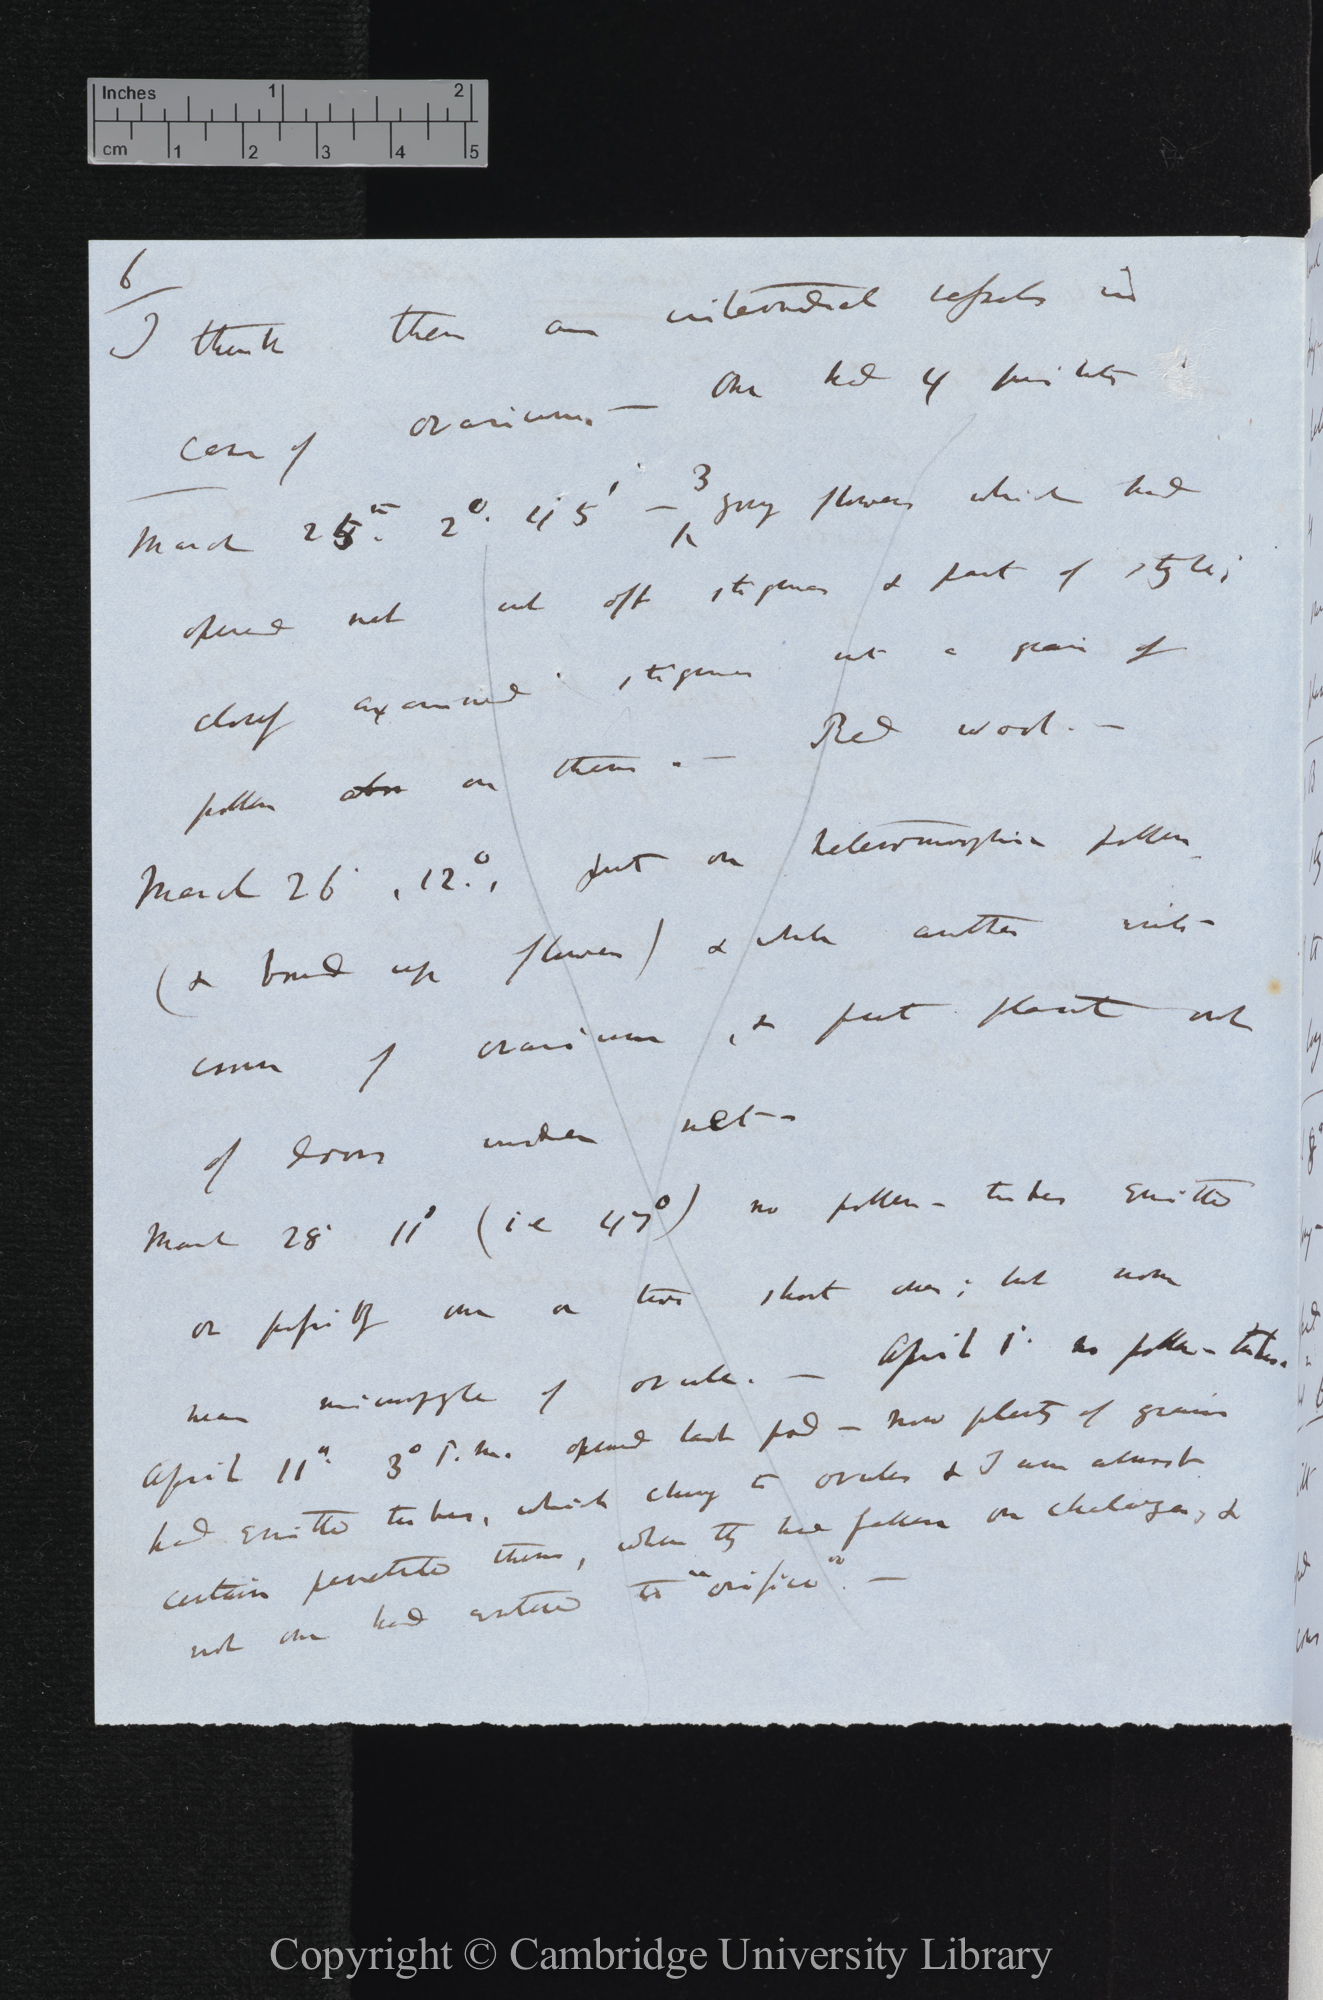 Inches 1 2
cm 1 2 3 4 5
6
I think there are vessels in
case of ovarium. — One had 4 pistils
March 25th. 2°. 45' — 3 young flowers which had
opened not cut off stigmas & part of style;
closely examined stigmas not a grain of
pollen on them. — Red wool. —
March 26, 12°., put on heteromorphic pollen
(& bound up flowers) & whole anther into
corner of ovarium, & put plant out
of doors under net —
March 28 11° (ie 47°) no pollen-tubes emitted
or possibly one or two short ones; but none
near micropyle of ovule. — April 1. no pollen-tubes.
April 11th. 3° P.m. opened last pod — now plenty of grains
had emitted tubes, which clung to ovules & I am almost
certain penetrated them, when they had fallen on chalaza, &
not one had entered to "orifice". —
Copyright © Cambridge University Library